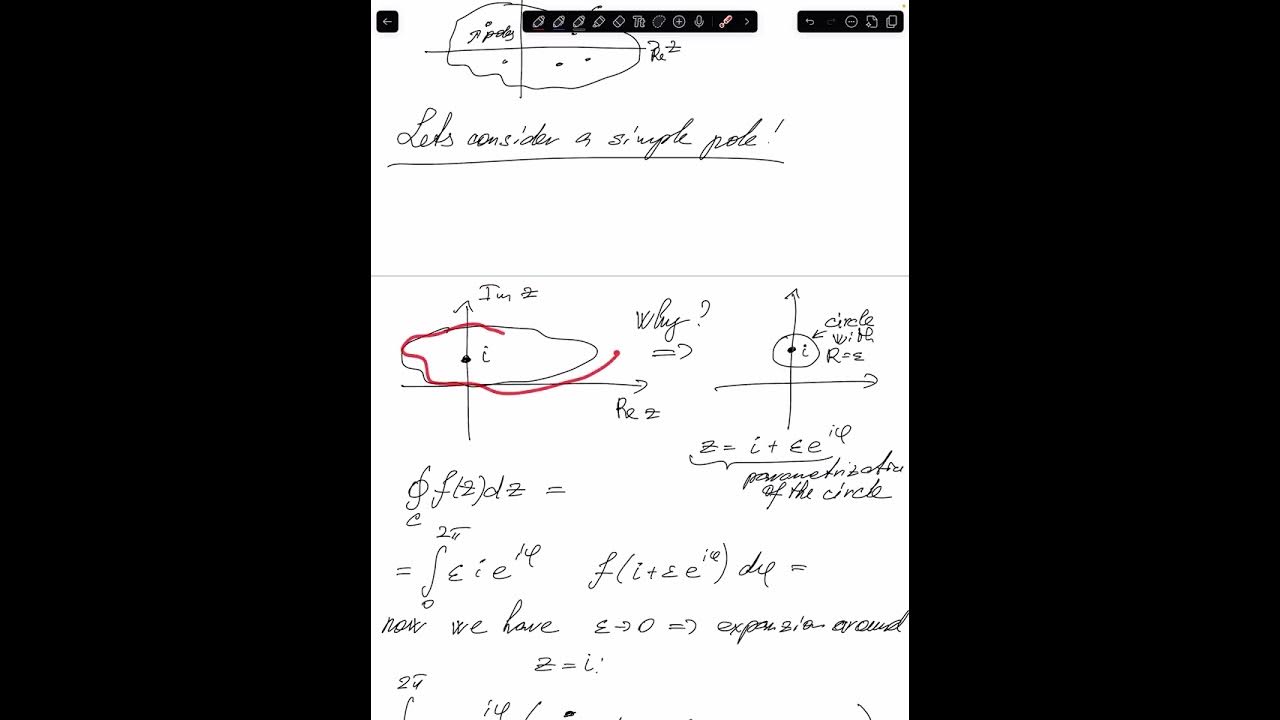 poles
Re z
Lets consider a simple pole!
Im z
i
Re z
why?
=>
circle
with
R=ε
i
z = i + εe^{iφ}
parametrization
of the circle
∮_C f(z)dz =
= ∫_0^{2π} ε i e^{iφ} f(i+εe^{iφ}) dφ =
now we have ε→0 => expansion around
z = i:
2π
∫ e^{iφ} (